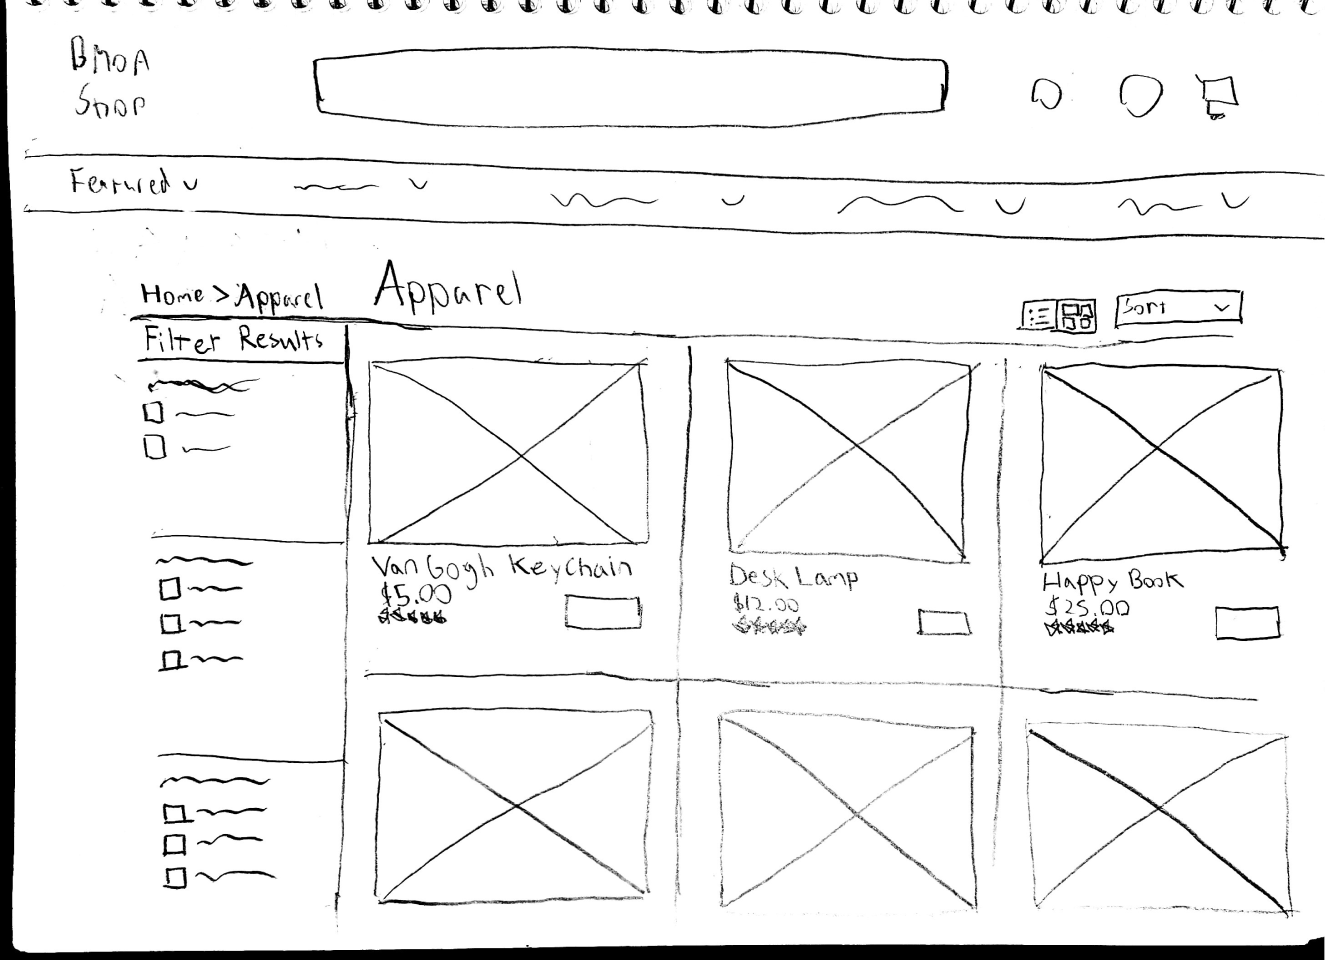 BMOA
Shop
Featured
Home > Apparel
Apparel
Sort
Filter Results
Van Gogh Keychain
$5.00
Desk Lamp
$12.00
Happy Book
$25.00